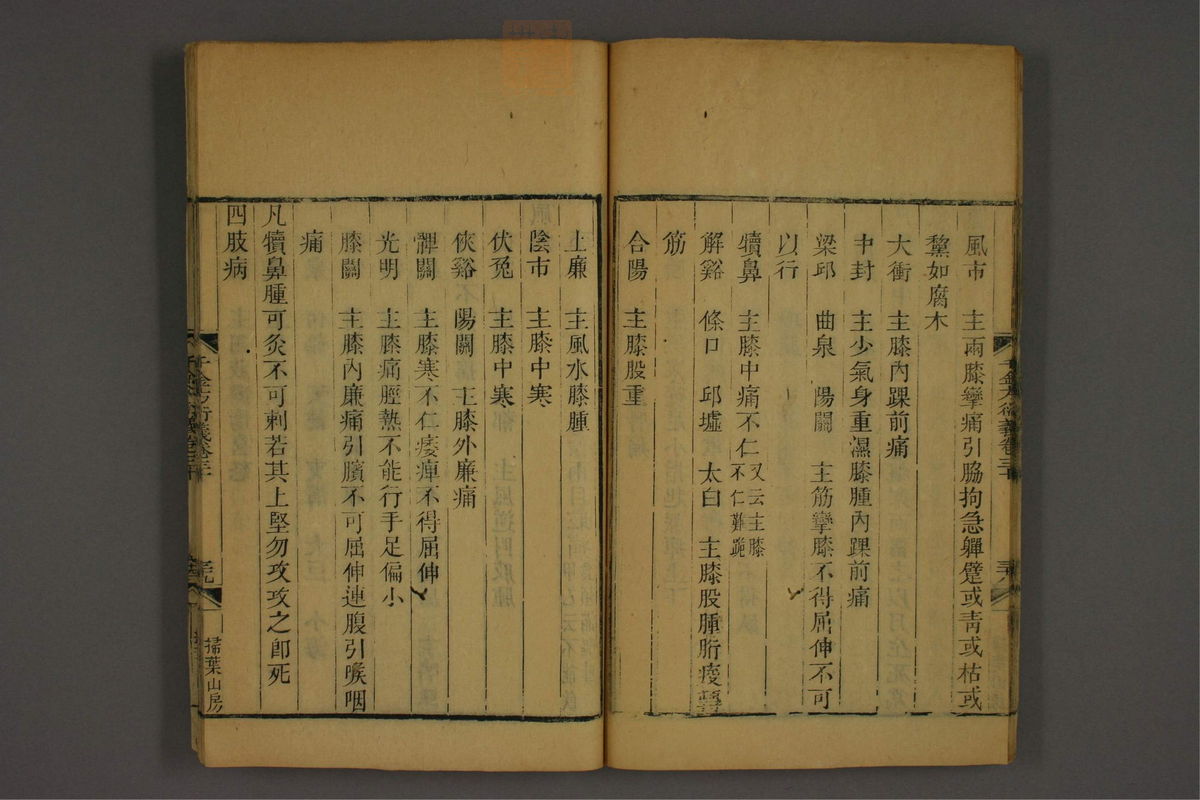 風市　主兩膝攣痛引脇拘急軃躄或靑或枯或
黧如腐木
大衝　主膝內踝前痛
中封　主少氣身重濕膝腫內踝前痛
梁邱　曲泉　陽關　主筋攣膝不得屈伸不可
以行
犢鼻　主膝中痛不仁又云主膝不仁難跪
解谿　條口　邱墟　太白　主膝股腫胻痠轉
筋
合陽　主膝股重
千金方衍義卷三十
上廉　主風水膝腫
陰市　主膝中寒
伏兔　主膝中寒
俠谿　陽關　主膝外廉痛
髀關　主膝寒不仁痿痺不得屈伸
光明　主膝痛脛熱不能行手足偏小
膝關　主膝內廉痛引臏不可屈伸連腹引喉咽
痛
凡犢鼻腫可灸不可刺若其上堅勿攻攻之卽死
四肢病
千金方衍義卷三十
掃葉山房